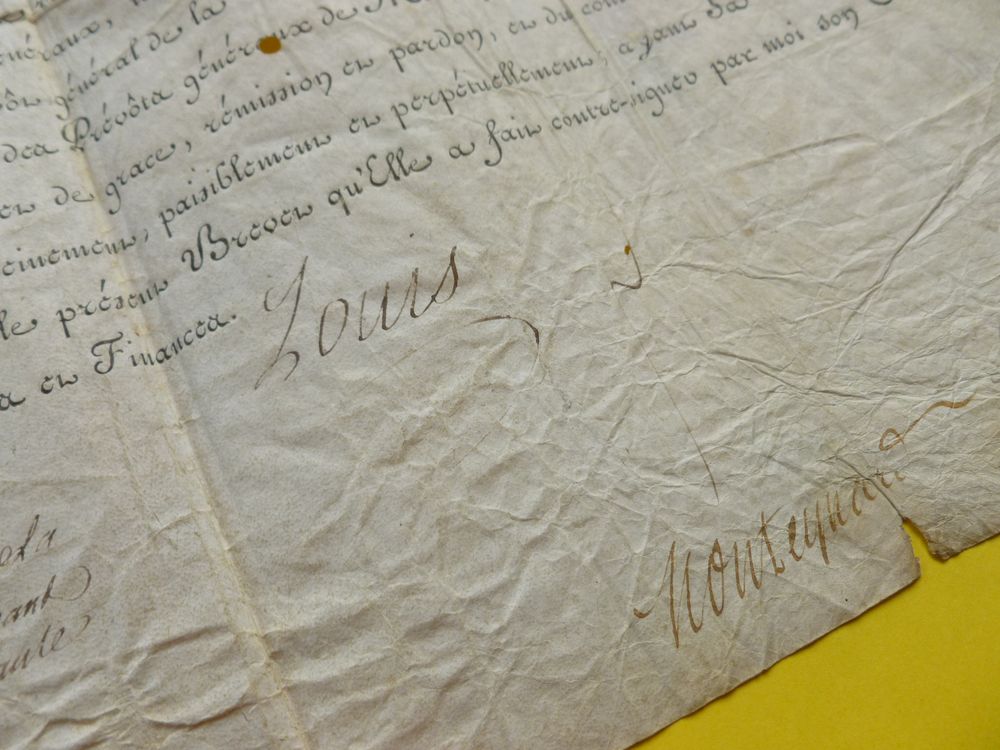 général de la
des Prévôts généraux de
de grace, rémission et pardon, et du
paisiblement et perpétuellement, ayant Sa
le présent Brevet qu'Elle a fait contre-signer par moi son
et Finances.
Louis
Monteynard